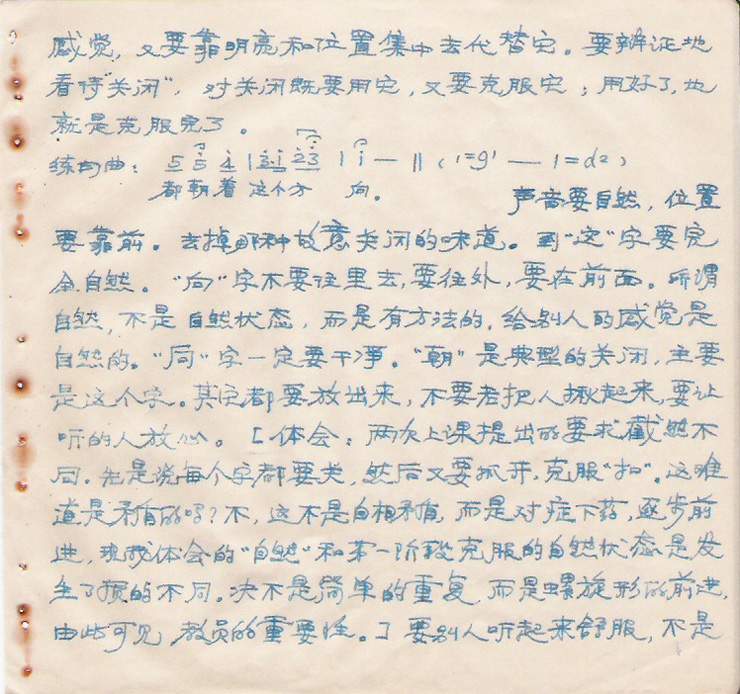 感觉，又要靠明亮和位置集中去代替它。要辩证地
看待“关闭”，对关闭既要用它，又要克服它；用好了，也
就是克服完了。
练习曲：5 5 i | 3·i 2 3 | i — ‖ （1=g¹ — 1=d²）
都朝着 这个方 向。
声音要自然，位置
要靠前。去掉那种故意关闭的味道。到“这”字要完
全自然。“向”字不要往里去，要往外，要在前面。所谓
自然，不是自然状态，而是有方法的，给别人的感觉是
自然的。“向”字一定要干净。“朝”是典型的关闭，主要
是这个字。其它都要放出来，不要老把人揪起来，要让
听的人放心。［体会：两次上课提出的要求截然不
同。先是说每个字都要关，然后又要抓开，克服“扣”。这难
道是矛盾的吗？不，这不是自相矛盾，而是对症下药，逐步前
进，现我体会的“自然”和第一阶段克服的自然状态是发
生了质的不同。决不是简单的重复，而是螺旋形的前进，
由此可见教员的重要性。］要别人听起来舒服，不是